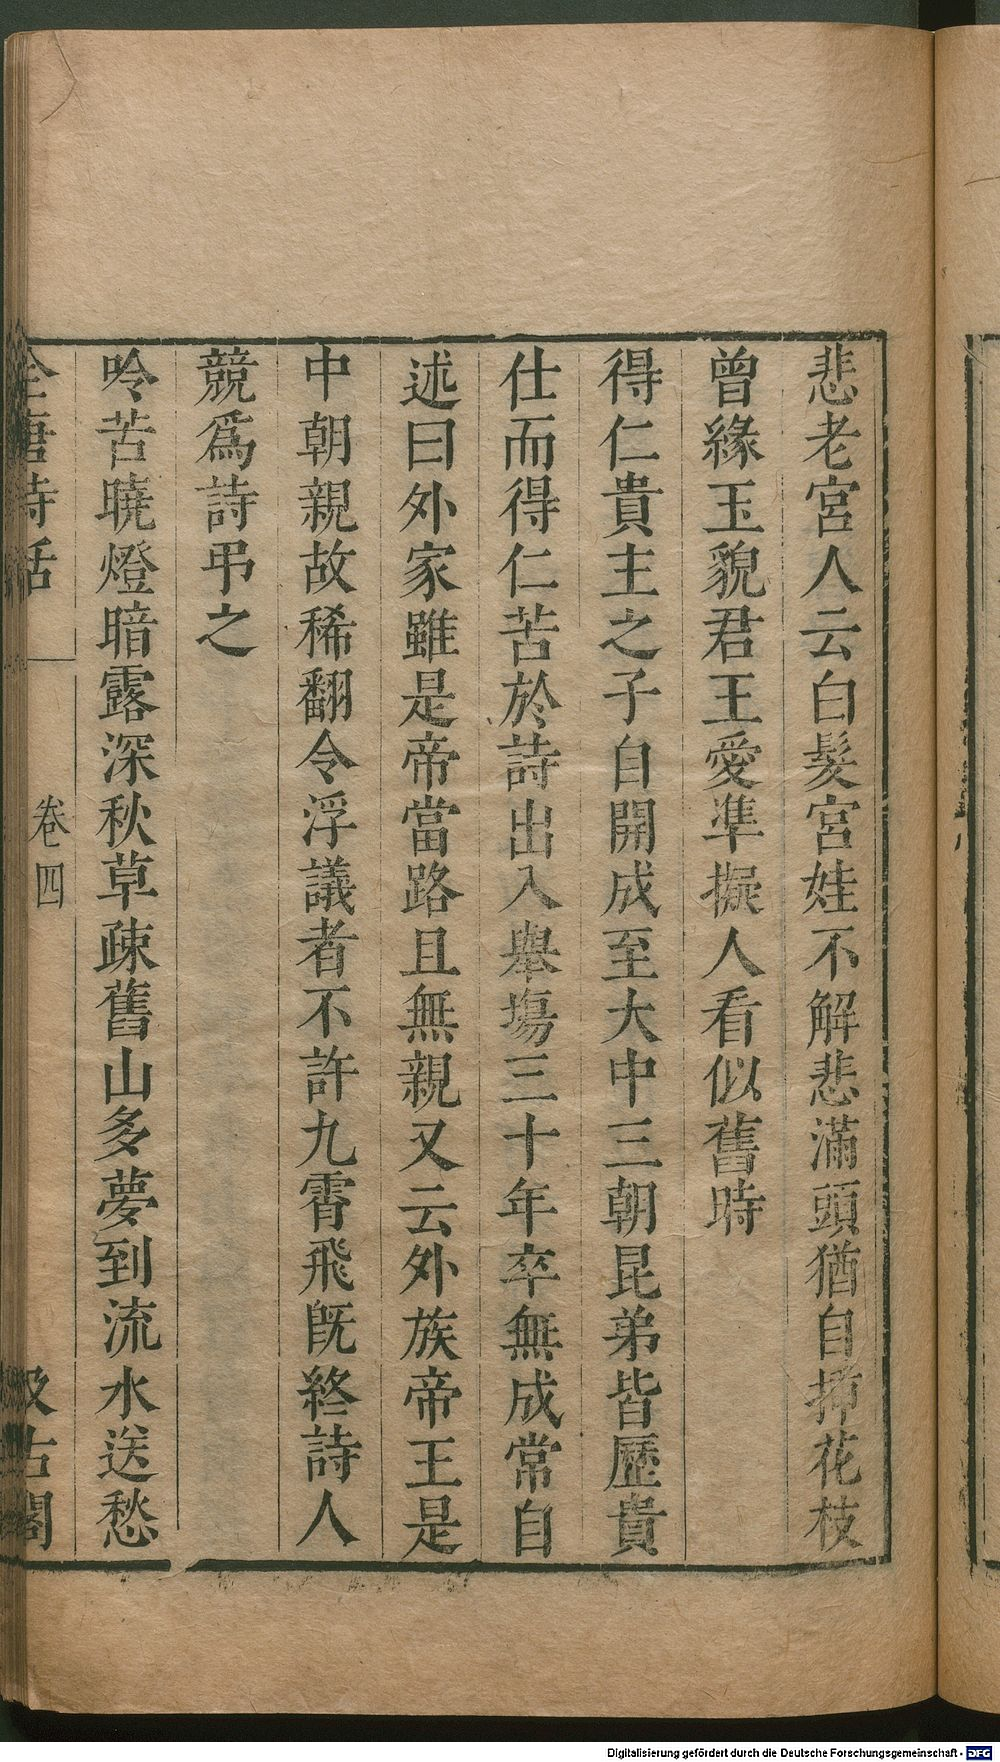 悲老宮人云白髮宮娃不解悲滿頭猶自揷花枝
曾緣玉貌君王愛準擬人看似舊時
得仁貴主之子自開成至大中三朝昆弟皆歷貴
仕而得仁苦於詩出入舉塲三十年卒無成常自
述曰外家雖是帝當路且無親又云外族帝王是
中朝親故稀翻令浮議者不許九霄飛旣終詩人
競爲詩弔之
吟苦曉燈暗露深秋草疎舊山多夢到流水送愁
全唐詩話
卷四
汲古閣
Digitalisierung gefördert durch die Deutsche Forschungsgemeinschaft - DFG